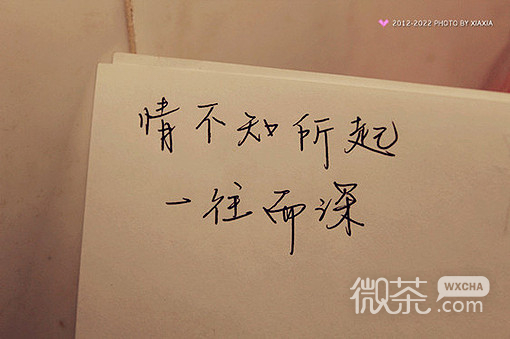 2012-2022 PHOTO BY XIAXIA
情不知所起
一往而深
微茶
WXCHA
.com